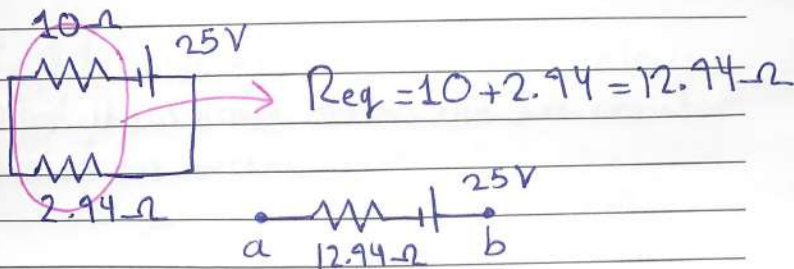 10Ω
25V
Req = 10 + 2.94 = 12.94Ω
2.94Ω
25V
a
12.94Ω
b